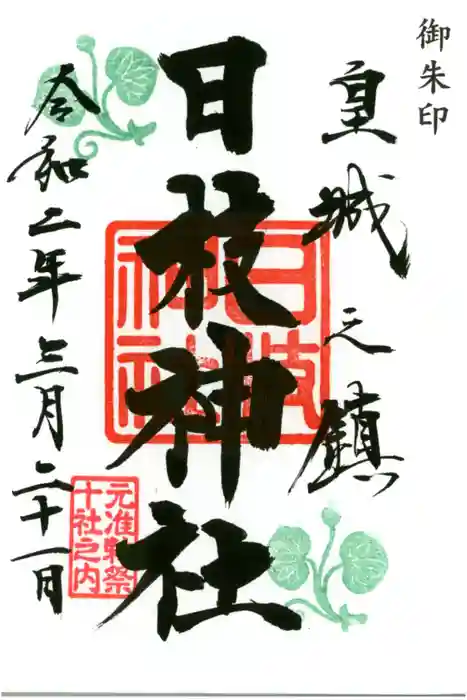 御朱印
皇城之鎮
日枝神社
日枝神社
元准勅祭
十社之内
令和二年三月二十一日